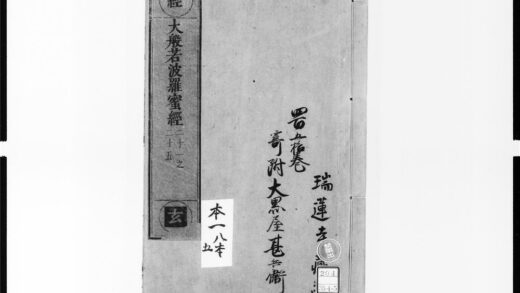 瑞蓮寺藏
四百五拾巻
寄附大黒屋甚兵衛
經
大般若波羅蜜經
二十一之
二十五
玄
本一八本
五
294